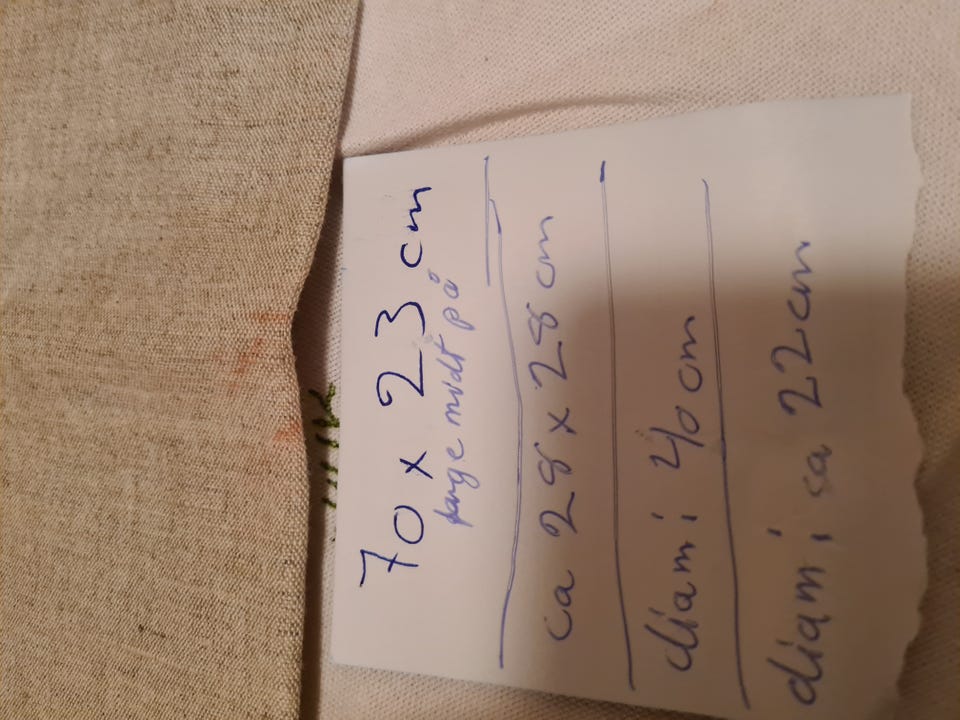 70 x 23 cm
farge midt på
ca 28 x 28 cm
diam i 40 cm
diam i ca 22 cm